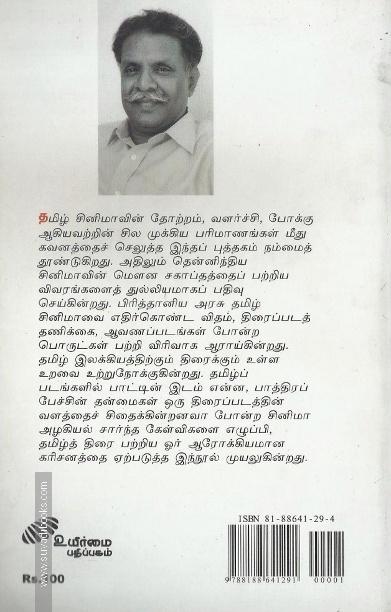 தமிழ் சினிமாவின் தோற்றம், வளர்ச்சி, போக்கு
ஆகியவற்றின் சில முக்கிய பரிமாணங்கள் மீது
கவனத்தைச் செலுத்த இந்தப் புத்தகம் நம்மைத்
தூண்டுகிறது. அதிலும் தென்னிந்திய
சினிமாவின் மௌன சகாப்தத்தைப் பற்றிய
விவரங்களைத் துல்லியமாகப் பதிவு
செய்கின்றது. பிரித்தானிய அரசு தமிழ்
சினிமாவை எதிர்கொண்ட விதம், திரைப்படத்
தணிக்கை, ஆவணப்படங்கள் போன்ற
பொருட்கள் பற்றி விரிவாக ஆராய்கின்றது.
தமிழ் இலக்கியத்திற்கும் திரைக்கும் உள்ள
உறவை உற்றுநோக்குகின்றது. தமிழ்ப்
படங்களில் பாட்டின் இடம் என்ன, பாத்திரப்
பேச்சின் தன்மைகள் ஒரு திரைப்படத்தின்
வளத்தைச் சிதைக்கின்றனவா போன்ற சினிமா
அழகியல் சார்ந்த கேள்விகளை எழுப்பி,
தமிழ்த் திரை பற்றிய ஓர் ஆரோக்கியமான
கரிசனத்தை ஏற்படுத்த இந்நூல் முயலுகின்றது.
ISBN 81-88641-29-4
உயிர்மை
பதிப்பகம்
9788188641291 00001
www.su
books.com